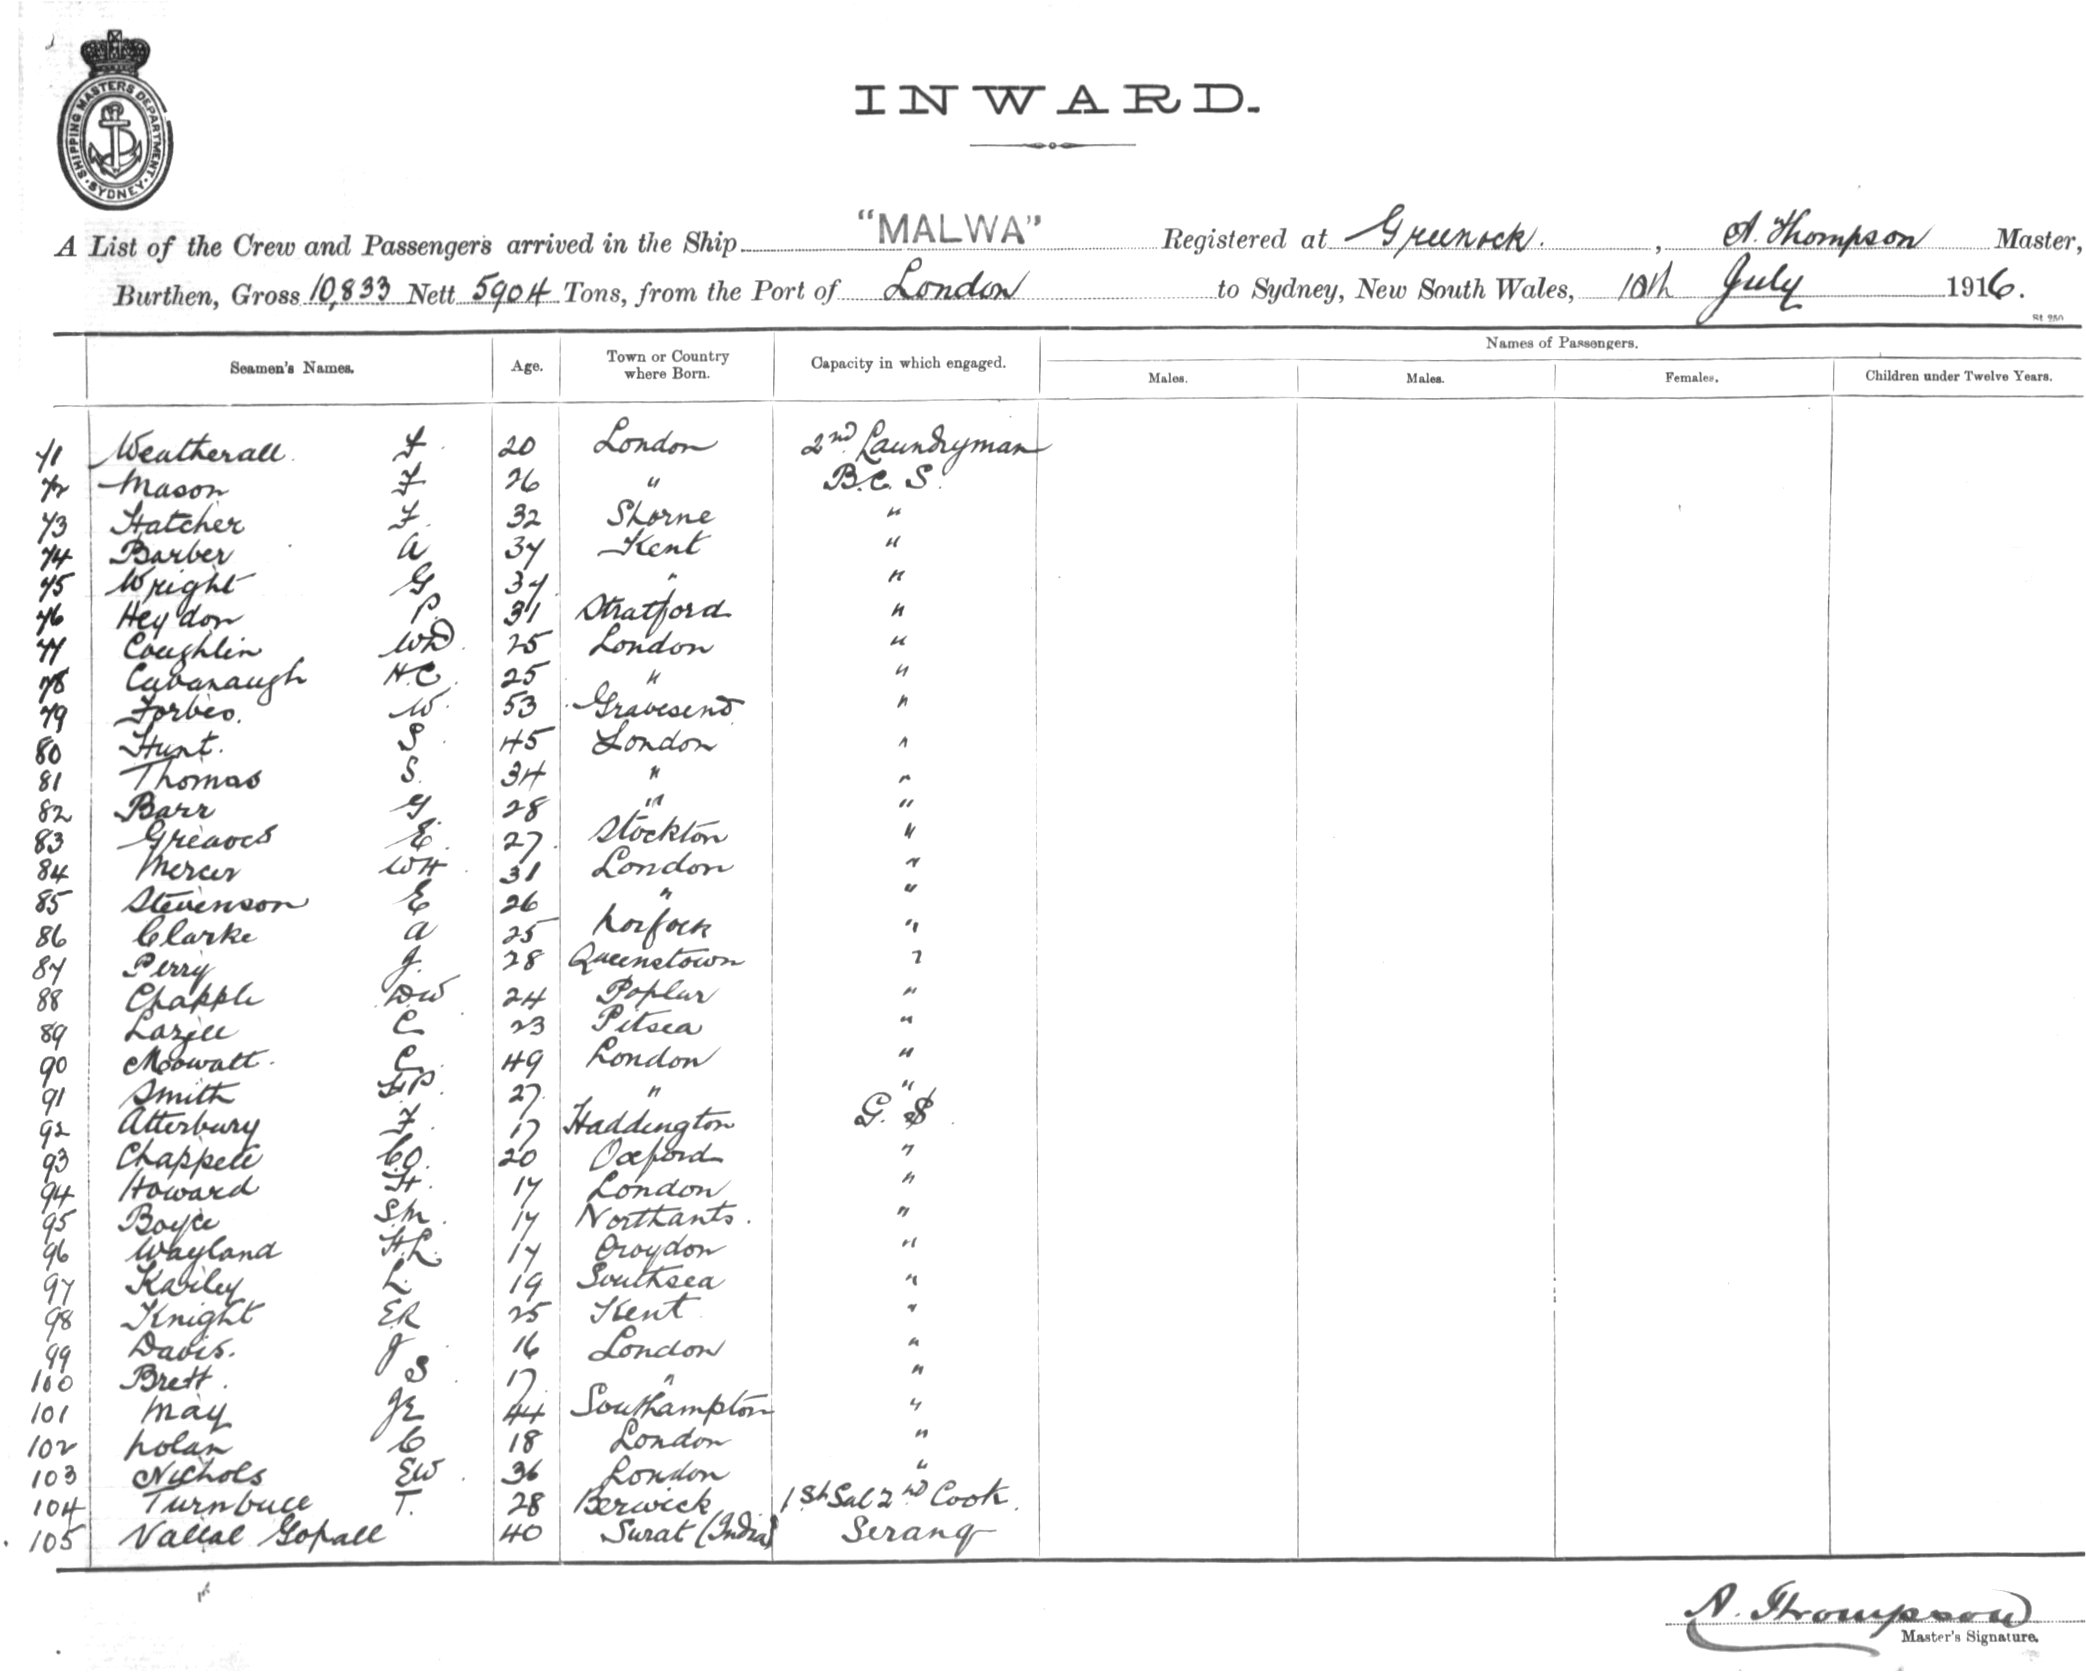 SHIPPING MASTERS DEPARTMENT. SYDNEY.
INWARD.
A List of the Crew and Passengers arrived in the Ship "MALWA" Registered at Greenock. , A. Thompson Master,
Burthen, Gross 10,833 Nett 5904 Tons, from the Port of London to Sydney, New South Wales, 10th July 1916.
Seamen's Names. Age. Town or Country where Born. Capacity in which engaged. Names of Passengers.
Males. Males. Females. Children under Twelve Years.
71 Weatherall F. 20 London 2nd Laundryman
72 Mason F 26 " B.C. S.
73 Hatcher F. 32 Shorne "
74 Barber A 37 Kent "
75 Wright G 37 " "
76 Heydon P. 31 Stratford "
77 Coughlin WD. 25 London "
78 Cavanaugh H.C. 25 " "
79 Forbes. W. 53 Gravesend "
80 Hunt. S. 45 London "
81 Thomas S. 34 " "
82 Barr G. 28 " "
83 Greaves E. 27. Stockton "
84 Mercer WH. 31 London "
85 Stevenson E 26 " "
86 Clarke A 25 Norfolk "
87 Perry J. 28 Queenstown "
88 Chapple DW 24 Poplar "
89 Lazell C 23 Pitsea "
90 Moowatt. C. 49 London "
91 Smith H.P. 27. " "
92 Atterbury F. 17 Haddington G. S.
93 Chappell C.O. 20 Oxford "
94 Howard H. 17 London "
95 Boyce S.M. 17 Northants. "
96 Wayland H.L. 17 Croydon "
97 Kaviley L. 19 Southsea "
98 Knight ER 25 Kent "
99 Davis. J 16 London "
100 Brett. S. 17. " "
101 May JE 44 Southampton "
102 Nolan C 18 London "
103 Nichols EW. 36 London "
104 Turnbull T. 28 Berwick 1st Sal 2nd Cook.
105 Vallal Gopall 40 Surat (India) Serang
A. Thompson
Master's Signature.